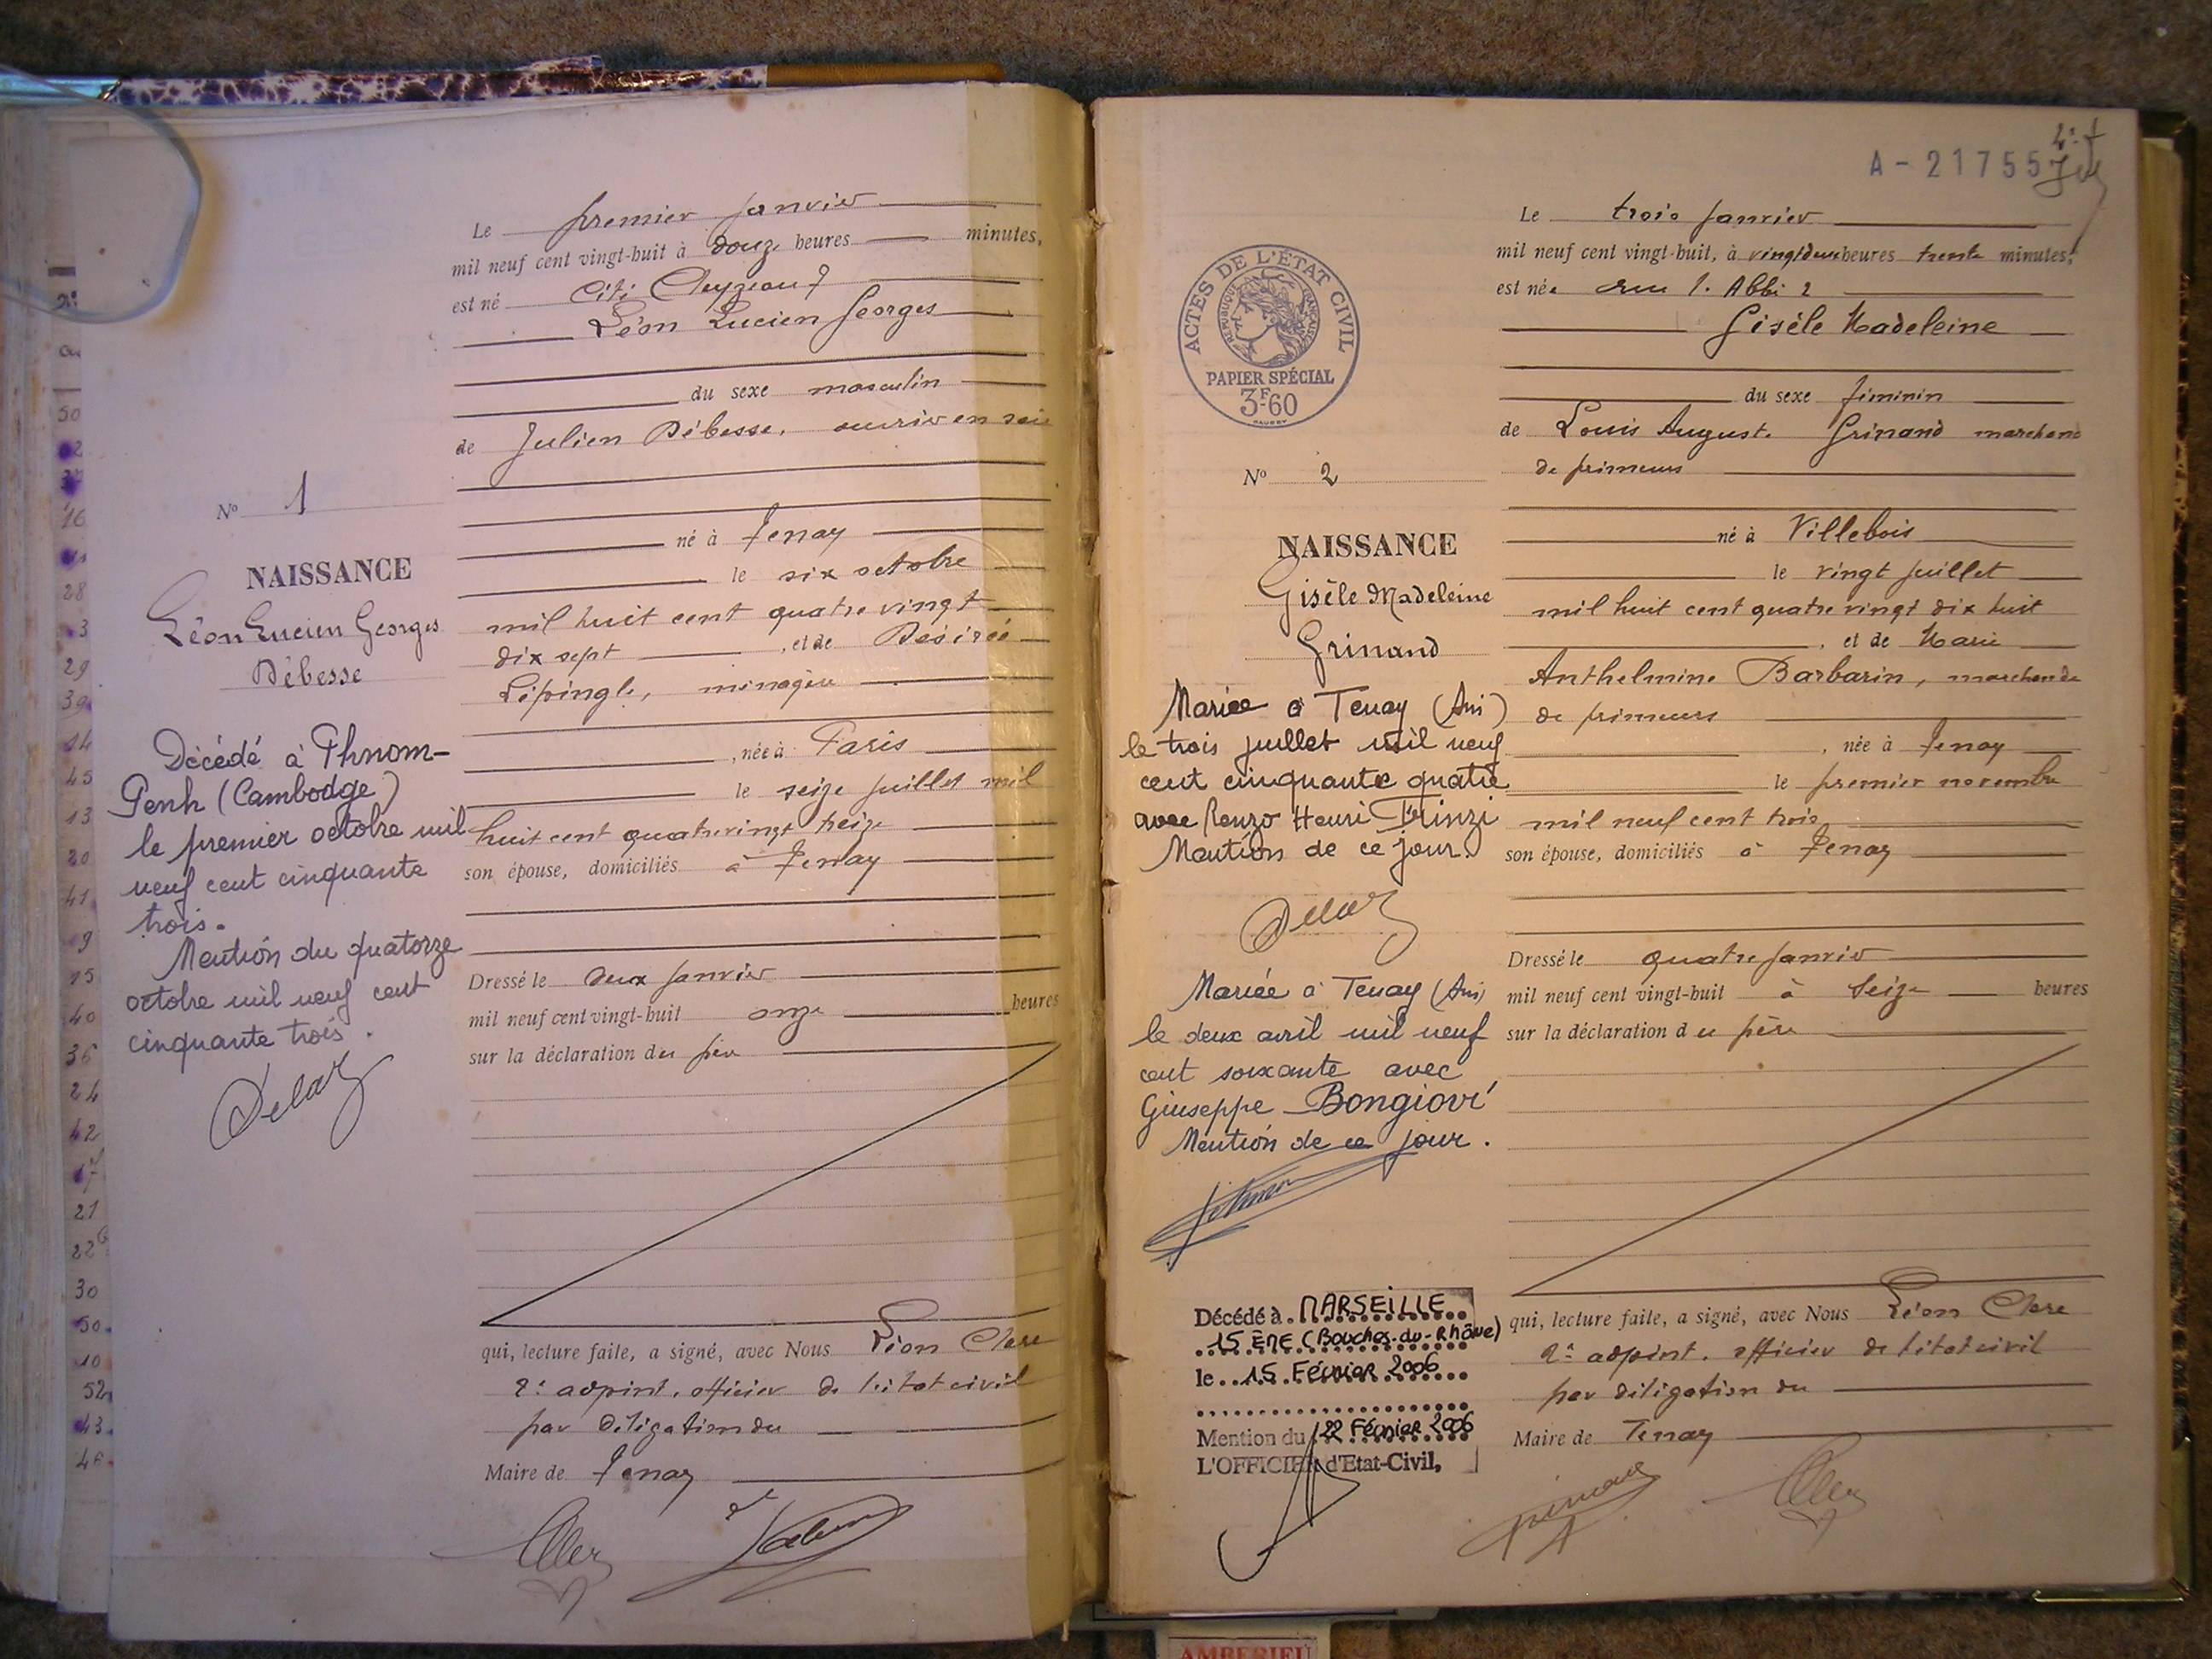 Le premier janvier
mil neuf cent vingt-huit à douze heures minutes,
est né Cité
Léon Lucien Georges
du sexe masculin
de Julien Débesse, ouvrier en soie
né à Tenay
le six octobre
mil huit cent quatre vingt
dix sept , et de Désirée
Lépingle, ménagère
, née à Paris
le seize juillet mil
huit cent quatre vingt treize
son épouse, domiciliés à Tenay
Dressé le deux janvier
mil neuf cent vingt-huit onze heures
sur la déclaration du père
qui, lecture faite, a signé, avec Nous Léon Clerc
2e adjoint, officier de l'état civil
par délégation du
Maire de Tenay
N° 1
NAISSANCE
Léon Lucien Georges
Débesse
Décédé à Phnom-
Penh (Cambodge)
le premier octobre mil
neuf cent cinquante
trois.
Mention du quatorze
octobre mil neuf cent
cinquante trois.
50
16
28
3
29
39
14
45
13
20
41
9
15
40
36
24
42
17
21
22
30
50
10
52
43
A-21755
ACTES DE L'ÉTAT CIVIL
RÉPUBLIQUE FRANÇAISE
PAPIER SPÉCIAL
3F-60
N° 2
NAISSANCE
Gisèle Madeleine
Grinand
Mariée à Tenay (Ain)
le trois juillet mil neuf
cent cinquante quatre
avec Renzo Henri Trinzi
Mention de ce jour.
Mariée à Tenay (Ain)
le deux avril mil neuf
cent soixante avec
Giuseppe Bongiovi
Mention de ce jour.
Décédé à MARSEILLE
15 ÈME (Bouches-du-Rhône)
le 15 Février 2006
Mention du 22 Février 2006
L'OFFICIER d'Etat-Civil,
Le trois janvier
mil neuf cent vingt-huit, à vingt deux heures trente minutes,
est née rue 2
Gisèle Madeleine
du sexe féminin
de Louis Auguste Grinand marchand
de primeurs
né à Villebois
le vingt juillet
mil huit cent quatre vingt dix huit
, et de Marie
Anthelmine Barbarin, marchande
de primeurs
, née à Tenay
le premier novembre
mil neuf cent trois
son épouse, domiciliés à Tenay
Dressé le quatre janvier
mil neuf cent vingt-huit à seize heures
sur la déclaration du père
qui, lecture faite, a signé, avec Nous Léon Clerc
2e adjoint, officier de l'état civil
par délégation du
Maire de Tenay
AMBERIEU